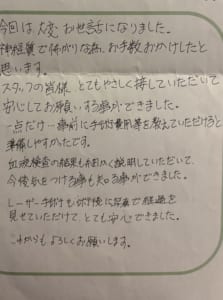 今回は大変お世話になりました。
神経質で怖がりな為、お手数おかけしたと
思います。
スタッフの皆様 とてもやさしく接していただいて
安心してお願いする事ができました。
一点だけ…事前に手術費用等を教えていただけると
準備しやすかったです。
血液検査の結果も細かく説明していただいて、
今後気をつける事も知る事ができました。
レーザー手術も術後に写真で経過を
見せていただけて、とても安心できました。
これからもよろしくお願いします。